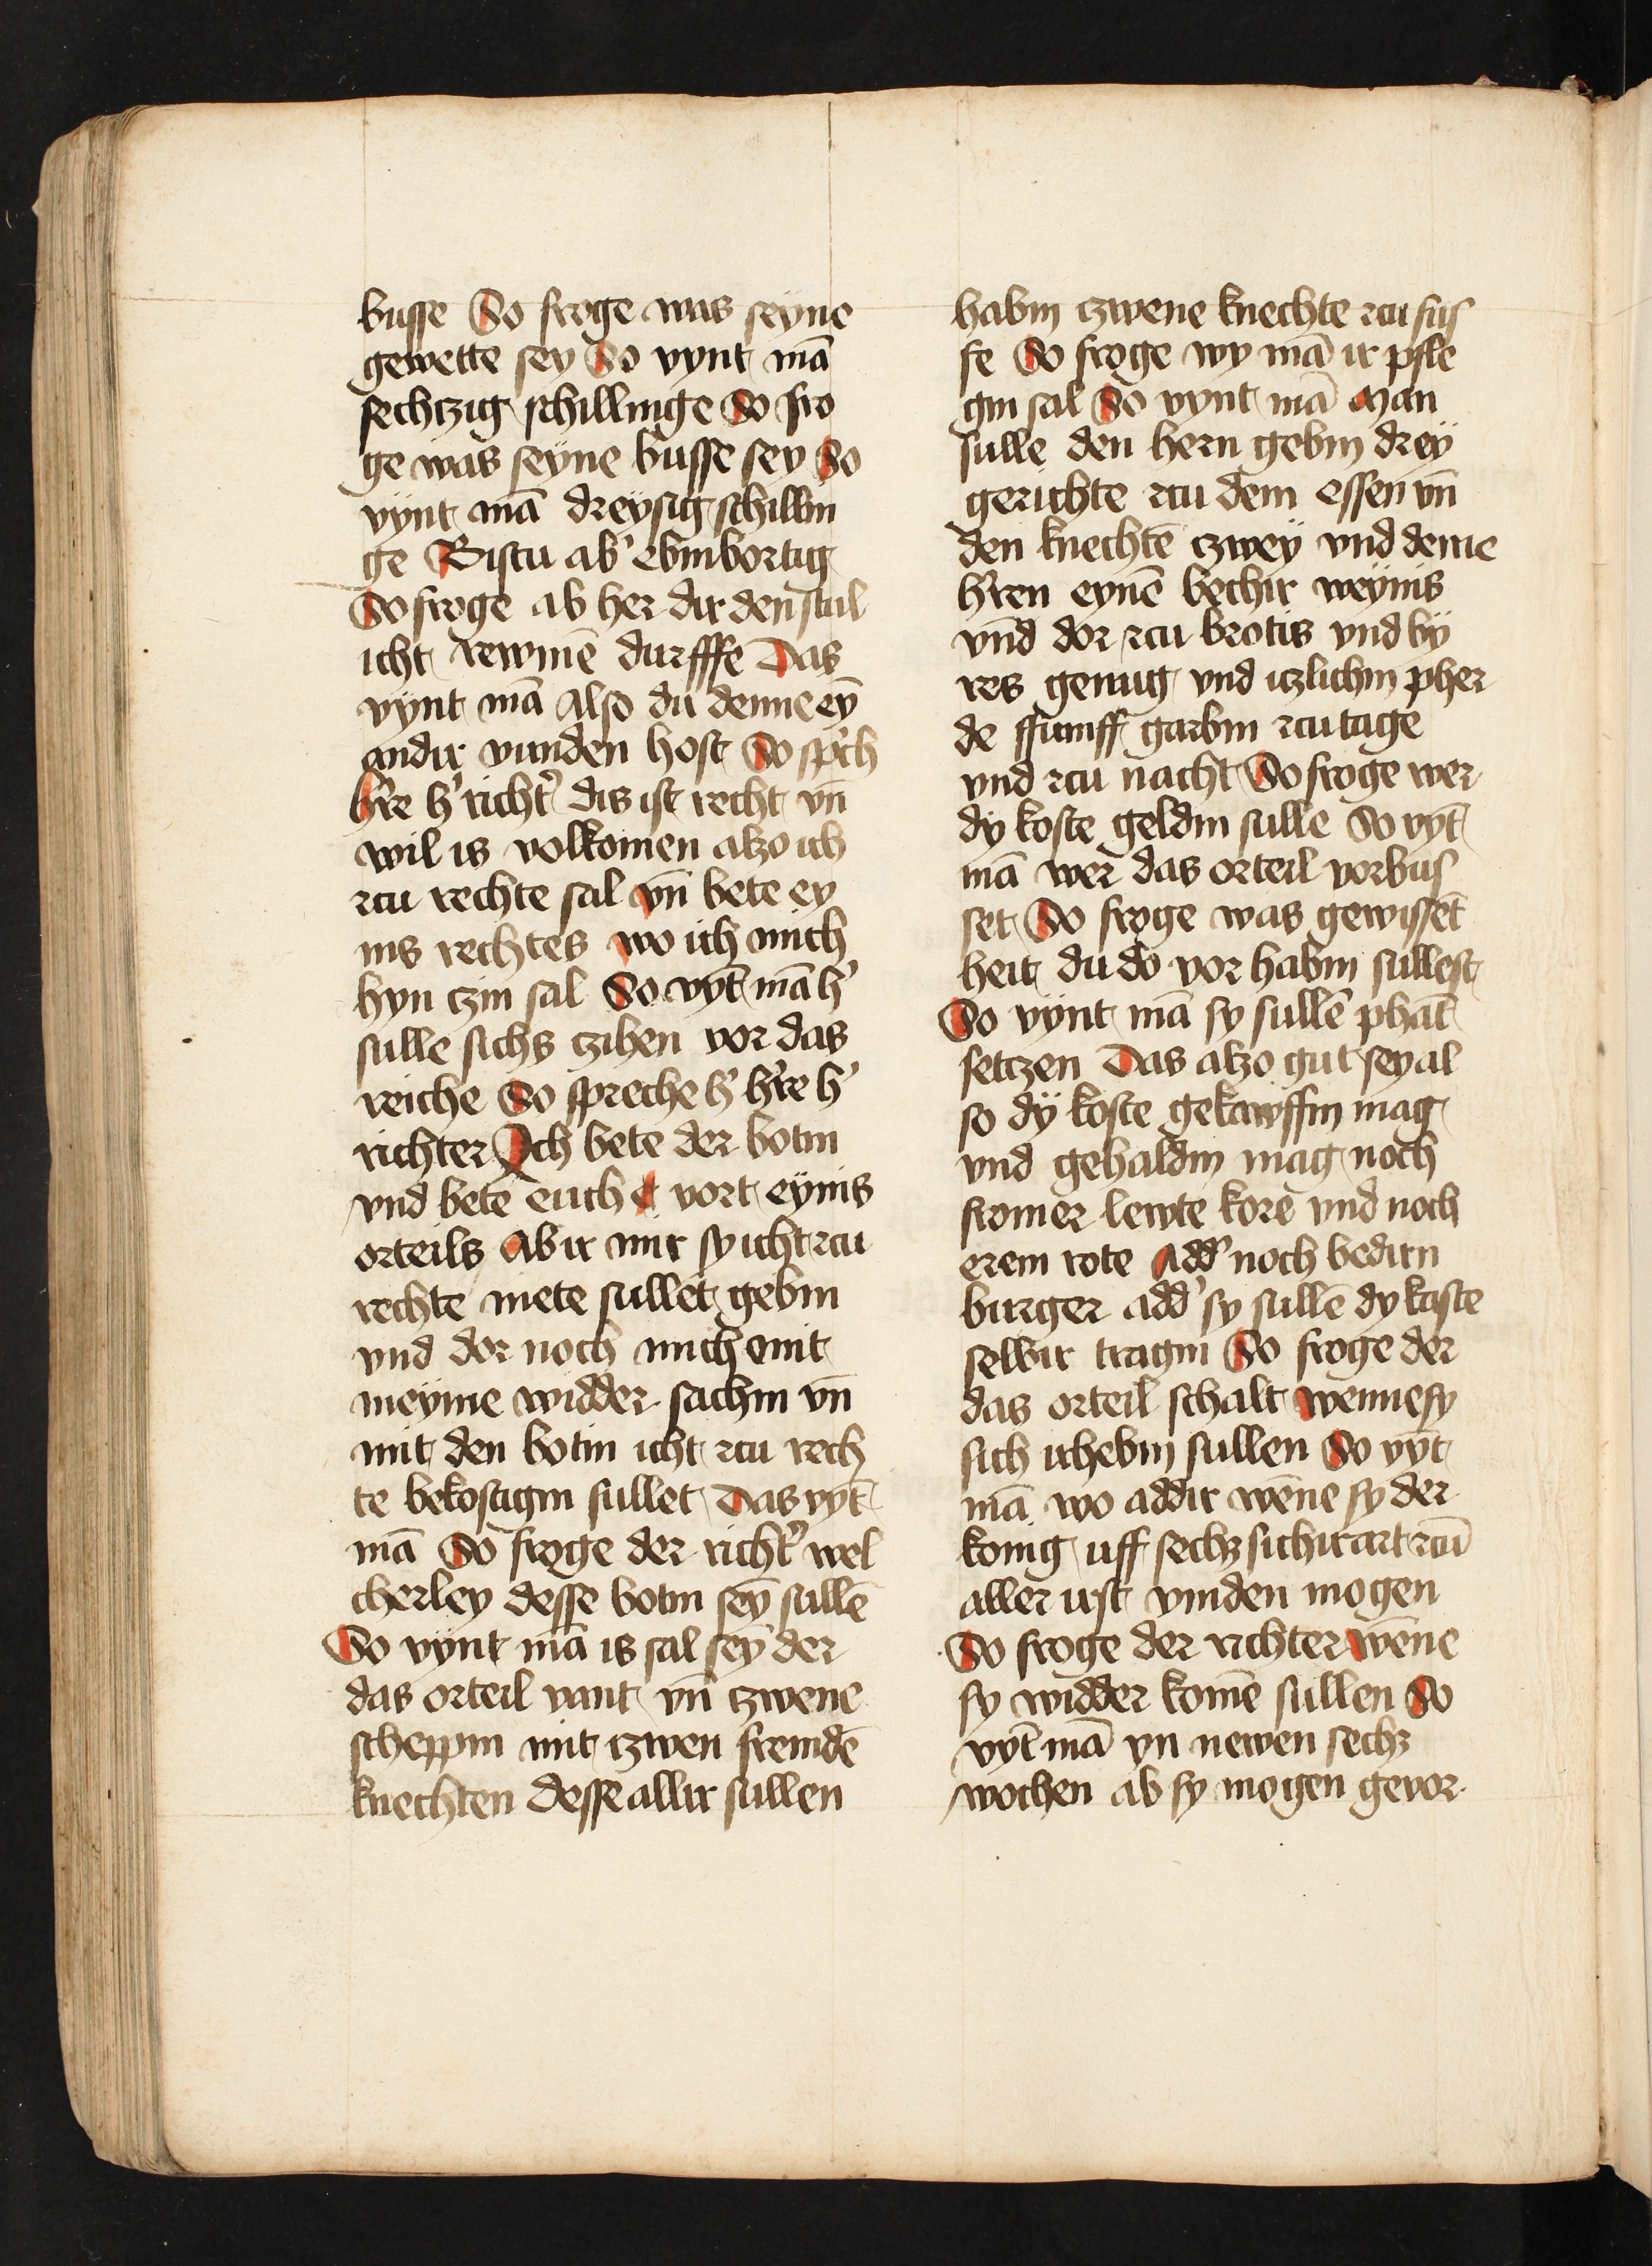 busse So froge was seyne
gewette sey So vynt mā
sechtzig schillinge So fro
ge was seyne busse sey So
vÿnt mā dreÿsig schillin
ge Bistu ab' ebinbortig
So froge ab her dir den stul
icht rewmē durfffe Das
vÿnt mā Also du denne eȳ
andir vunden host So sp'ch
h're h' richt' dis ist recht vn̄
wil is volkomen alzo ich
zcu rechte sal vn̄ bete ey
nis rechtes wo ich mich
hyn czin sal So vyt̄ mā h'
sulle sichs czihen vor das
reiche So spreche h' h're h'
richter Ich bete der botin
vnd bete euch vort eÿnis
orteils Ab ir mir sy icht zcu
rechte mete sullet gebin
vnd dor noch mich mit
meÿme widder sachin vn̄
mit den botin icht zcu rech
te bekostigin sullet Das vyt̄
mā So froge der richt' wel
cherley desse botin seȳ sullē
So vÿnt mā is sal seȳ der
das orteil vant vn̄ czwene
scheppin mit czwen fremdē
knechten Desse allir sullen
habin czwene knechte zcu fus
se So froge wy mā ir pfle
gin sal So vynt mā Man
sulle den hern gebin dreÿ
gerichte zcu dem essen vn̄
den knechtē czweÿ vnd deme
h'ren eynē bechir weÿnis
vnd dor zcu brotis vnd bÿ
res genug vnd itzlichin pher
de ffumff garbin zcu tage
vnd zcu nacht So froge wer
dÿ koste geldin sulle So vyt̄
mā wer das orteil vorbus
set So froge was gewissēt
heit du do vor habin sullest
So vÿnt mā sy sullē phāt
setczen Das alzo gut sey al
so dÿ koste gekawffin mag
vnd gehaldin mag noch
fromer lewte kore vnd noch
erem rote Add' noch bedirn
burger add' sy sullē dy koste
selbir tragin So froge der
das orteil schalt wenne sy
sich irhebin sullen So vyt̄
mā wo addir wēne sy der
konig uff sechz sichir art zcū
aller irst vinden mogen
So froge der richter wēne
sy widder komē sullen So
vyt̄ mā yn newen sechz
wochen ab sy mogen gevor